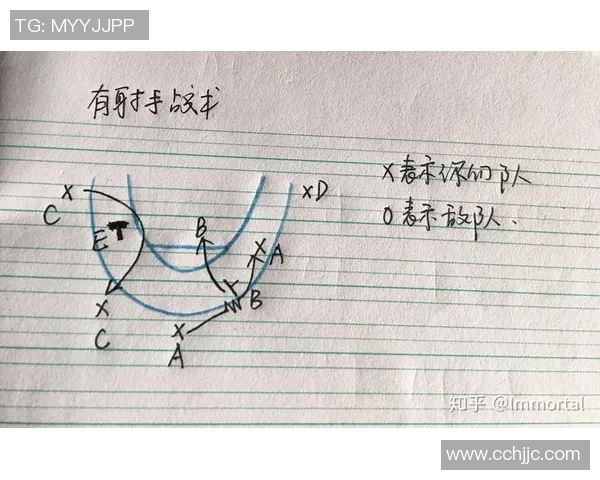 TG: MYYJJPP
有射手战术
X表示你们队
O表示敌队.
X
C
E
B
X
A
XD
X
C
B
X
A
知乎 @Immortal
www.cchjjc.com